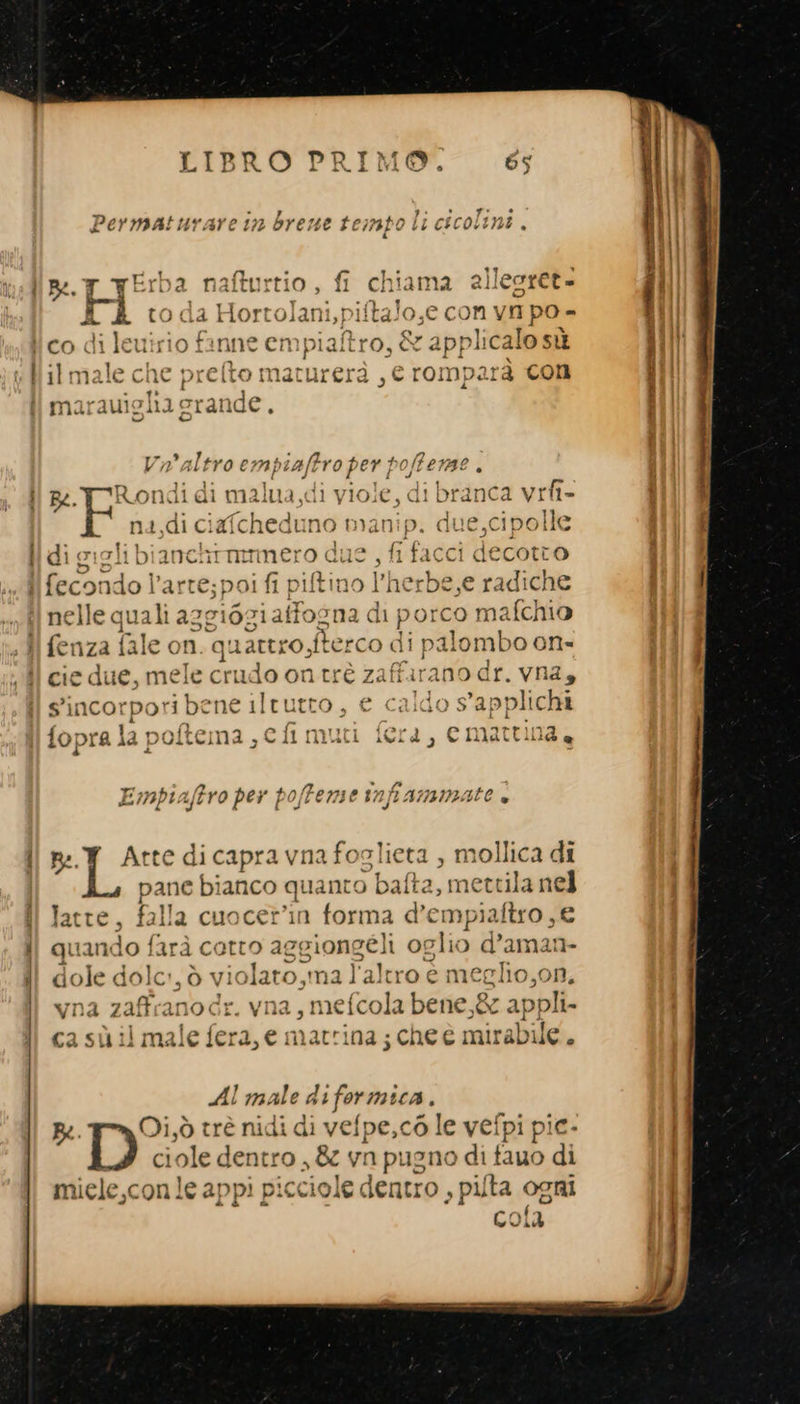 LIBRO PRIMO. 65
Per maturare in breue tempo li cicolini.
℞. HErba nasturtio, si chiama allegret-
to da Hortolani, pistalo, e con vn po-
co di leuirio fanne empiastro, & applicalo sù
il male che presto maturerà, e romparà con
marauiglia grande.
Vn'altro empiastro per posteme.
℞. FRondi di malua, di viole, di branca vrsi-
na, di ciascheduno manip. due, cipolle
di gigli bianchi nummero due, si facci decotto
secondo l'arte; poi si pistino l'herbe, e radiche
nelle quali aggiõgi assogna di porco maschio
senza sale on. quattro, sterco di palombo on-
cie due, mele crudo on trè zaffarano dr. vna,
s'incorpori bene il tutto, e caldo s'applichi
sopra la postema, e si muti sera, e mattina.
Empiastro per posteme infiammate.
℞. LAtte di capra vna foglieta, mollica di
pane bianco quanto basta, mettila nel
latte, falla cuocer'in forma d'empiastro, e
quando sarà cotto aggiongeli oglio d'aman-
dole dolci, ò violato, ma l'altro è meglio, on.
vna zaffrano dr. vna, mescola bene, & appli-
ca sù il male sera, e mattina; che è mirabile.
Al male di formica.
℞. DOi, ò trè nidi di vespe, cõ le vespi pic-
ciole dentro, & vn pugno di fauo di
miele, con le appi picciole dentro, pista ogni
cosa